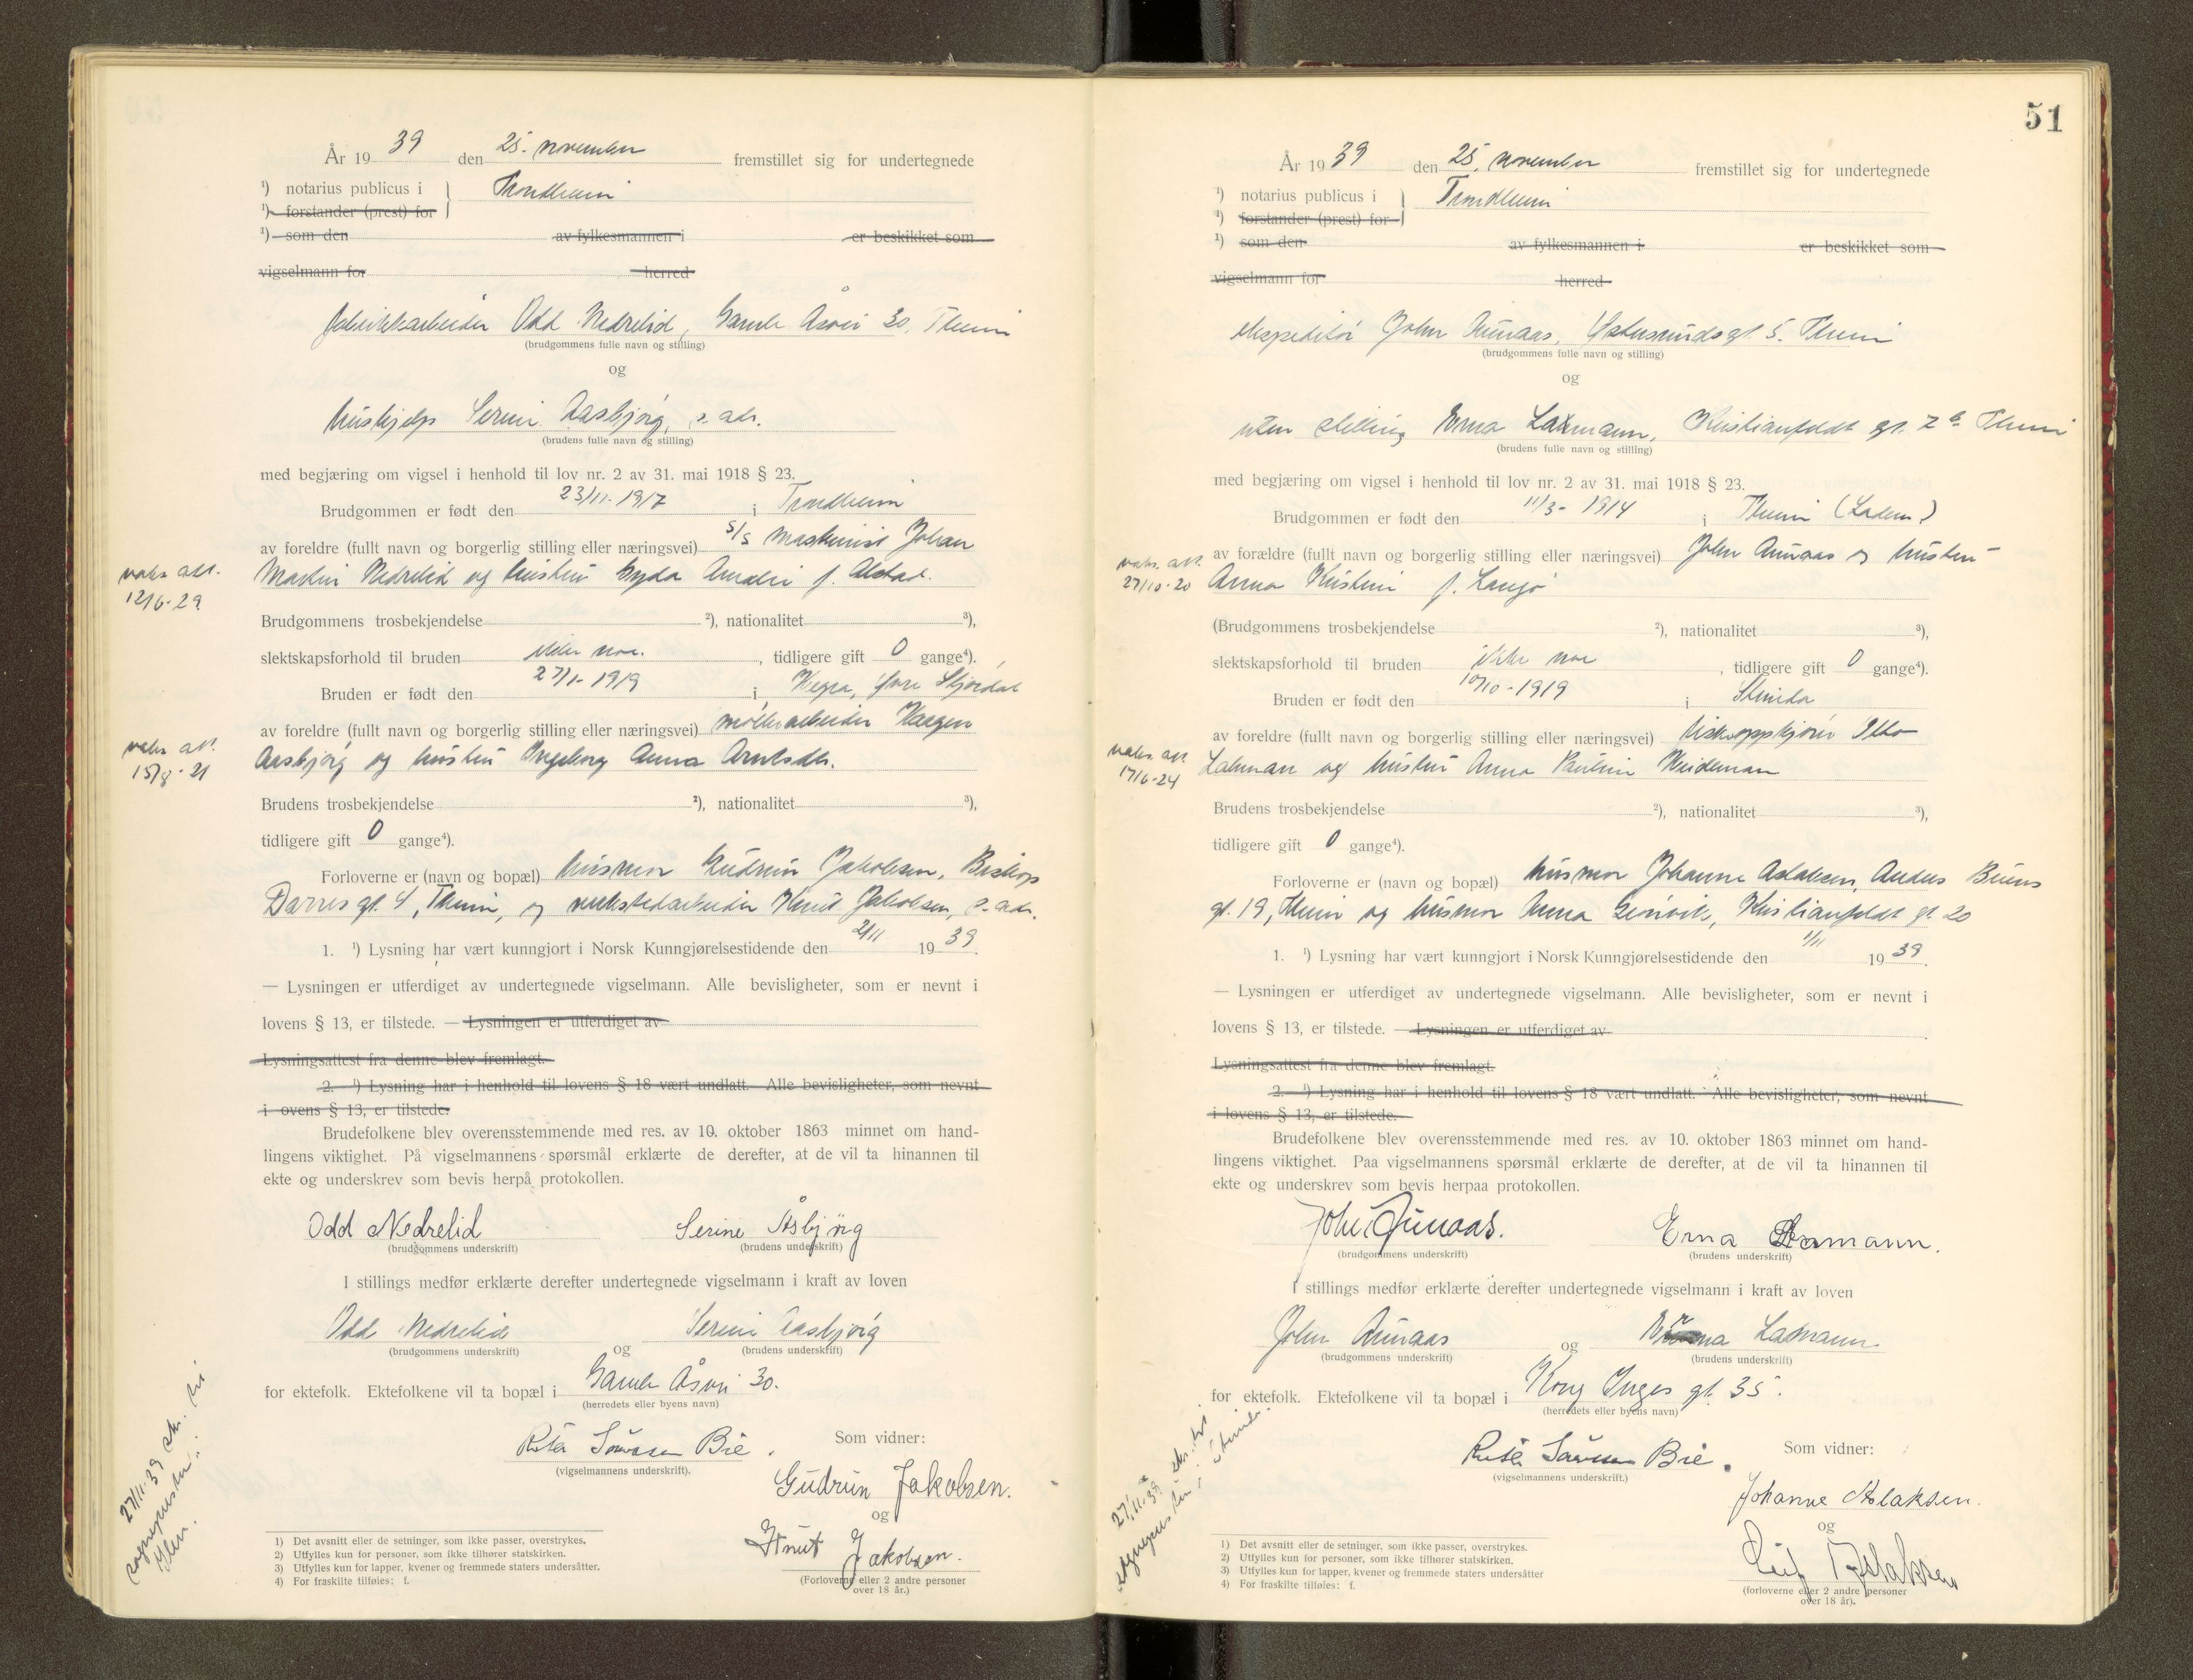 År 19 39 den 25. november fremstillet sig for undertegnede
¹) notarius publicus i } Trondheim
¹) forstander (prest) for
¹) som den av fylkesmannen i er beskikket som
vigselmann for herred
fabrikkarbeider Odd Nedrelid, Gamle Åsvei 30, Theim
(brudgommens fulle navn og stilling)
og
hushjelp Serine Aasbjørg, s. adr.
(brudens fulle navn og stilling)
med begjæring om vigsel i henhold til lov nr. 2 av 31. mai 1918 § 23.
Brudgommen er født den 23/11-1917 i Trondheim
av foreldre (fullt navn og borgerlig stilling eller næringsvei) s/s maskinist Johan
vaks. att. 12/6-29
Martin Nedrelid og hustru Gyda Amalie f. Alstad.
Brudgommens trosbekjendelse ²), nationalitet ³),
slektskapsforhold til bruden ikke noe. , tidligere gift 0 gange⁴).
Bruden er født den 27/1-1919 i Hegra, Øvre Stjørdal
av foreldre (fullt navn og borgerlig stilling eller næringsvei) møllearbeider Haagen
vaks. att. 15/8-21
Aasbjørg og hustru Ingeborg Anna Arntsdtr.
Brudens trosbekjendelse ²), nationalitet ³),
tidligere gift 0 gange⁴).
Forloverne er (navn og bopæl) husmor Gudrun Jakobsen, Biskop
Darres gt. 4, Theim, og verkstedarbeider Knut Jakobsen, s. adr.
1. ¹) Lysning har vært kunngjort i Norsk Kunngjørelsestidende den 2/11 19 39.
— Lysningen er utferdiget av undertegnede vigselmann. Alle bevisligheter, som er nevnt i
lovens § 13, er tilstede. — Lysningen er utferdiget av
Lysningsattest fra denne blev fremlagt.
2. ¹) Lysning har i henhold til lovens § 18 vært undlatt. Alle bevisligheter, som nevnt
i ovens § 13, er tilstede.
Brudefolkene blev overensstemmende med res. av 10. oktober 1863 minnet om hand-
lingens viktighet. På vigselmannens spørsmål erklærte de derefter, at de vil ta hinannen til
ekte og underskrev som bevis herpå protokollen.
Odd Nedrelid Serine Åsbjörg
(brudgommens underskrift) (brudens underskrift)
I stillings medfør erklærte derefter undertegnede vigselmann i kraft av loven
Odd Nedrelid og Serine Aasbjørg
(brudgommens underskrift) (brudens underskrift)
for ektefolk. Ektefolkene vil ta bopæl i Gamle Åsvei 30.
(herredets eller byens navn)
Bie. Som vidner:
(vigselmannens underskrift).
Gudrun Jakobsen.
og
Knut Jakobsen.
(Forloverne eller 2 andre personer
over 18 år.)
27/11-39 skr. til
sognepresten i
Ilen.
1) Det avsnitt eller de setninger, som ikke passer, overstrykes.
2) Utfylles kun for personer, som ikke tilhører statskirken.
3) Utfylles kun for lapper, kvener og fremmede staters undersåtter.
4) For fraskilte tilføies: f.
51
År 19 39 den 25. november fremstillet sig for undertegnede
¹) notarius publicus i } Trondheim
¹) forstander (prest) for
¹) som den av fylkesmannen i er beskikket som
vigselmann for herred
ekspeditør John Aunaas, gt. 5. Theim
(brudgommens fulle navn og stilling)
og
uten stilling Erna Laxmann, Kristianfeldts gt. Theim
(brudens fulle navn og stilling)
med begjæring om vigsel i henhold til lov nr. 2 av 31. mai 1918 § 23.
Brudgommen er født den 11/3-1914 i Theim (Lademo.)
av forældre (fullt navn og borgerlig stilling eller næringsvei) John Aunaas og hustru
vaks. att. 27/10-20
Anna Kristine f. Langø
(Brudgommens trosbekjendelse ²), nationalitet ³),
slektskapsforhold til bruden ikke noe , tidligere gift 0 gange⁴).
Bruden er født den 10/10-1919 i Strinda
av foreldre (fullt navn og borgerlig stilling eller næringsvei) fiskeoppkjøper Otto
vaks. att. 17/6-24
Laxman og hustru Anna Pauline Weideman
Brudens trosbekjendelse ²), nationalitet ³),
tidligere gift 0 gange⁴).
Forloverne er (navn og bopæl) husmor Johanne Aslaksen, Anders Buens
gt. 19, Theim og husmor Anna Kristianfeldts gt. 20
1. ¹) Lysning har vært kunngjort i Norsk Kunngjørelsestidende den 1/11 19 39.
— Lysningen er utferdiget av undertegnede vigselmann. Alle bevisligheter, som er nevnt i
lovens § 13, er tilstede. — Lysningen er utferdiget av
Lysningsattest fra denne blev fremlagt.
2. ¹) Lysning har i henhold til lovens § 18 vært undlatt. Alle bevisligheter, som nevnt
i lovens § 13, er tilstede.
Brudefolkene blev overensstemmende med res. av 10. oktober 1863 minnet om hand-
lingens viktighet. Paa vigselmannens spørsmål erklærte de derefter, at de vil ta hinannen til
ekte og underskrev som bevis herpaa protokollen.
John Aunaas. Erna Laxmann.
(brudgommens underskrift) (brudens underskrift)
I stillings medfør erklærte derefter undertegnede vigselmann i kraft av loven
John Aunaas og Erna Laxmann
(brudgommens underskrift) (brudens underskrift)
for ektefolk. Ektefolkene vil ta bopæl i Kong Inges gt. 35.
(herredets eller byens navn)
Bie. Som vidner:
(vigselmannens underskrift.)
Johanne Aslaksen.
og
Leif Aslaksen
(forloverne eller 2 andre personer
over 18 år).
27/11-39 skr. til
sognepresten i Strinda.
1) Det avsnitt eller de setninger, som ikke passer, overstrykes.
2) Utfylles kun for personer, som ikke tilhører statskirken.
3) Utfylles kun for lapper, kvener og fremmede staters undersåtter
4) For fraskilte tilføies: f.